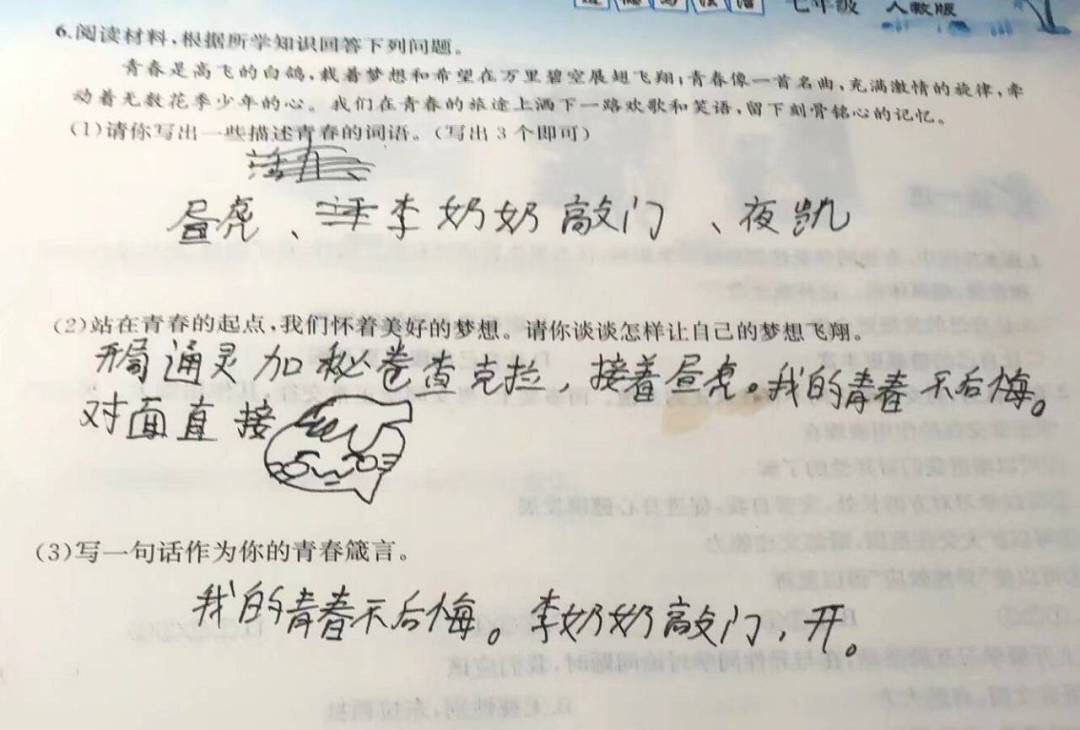 道德与法治 七年级 人教版
6.阅读材料,根据所学知识回答下列问题。
青春是高飞的白鸽,载着梦想和希望在万里碧空展翅飞翔;青春像一首名曲,充满激情的旋律,牵
动着无数花季少年的心。我们在青春的旅途上洒下一路欢歌和笑语,留下刻骨铭心的记忆。
(1)请你写出一些描述青春的词语。(写出3个即可)
昼虎、李奶奶敲门、夜凯
(2)站在青春的起点,我们怀着美好的梦想。请你谈谈怎样让自己的梦想飞翔。
开局通灵加秘卷查克拉,接着昼虎。我的青春不后悔。
对面直接
(3)写一句话作为你的青春箴言。
我的青春不后悔。李奶奶敲门,开。